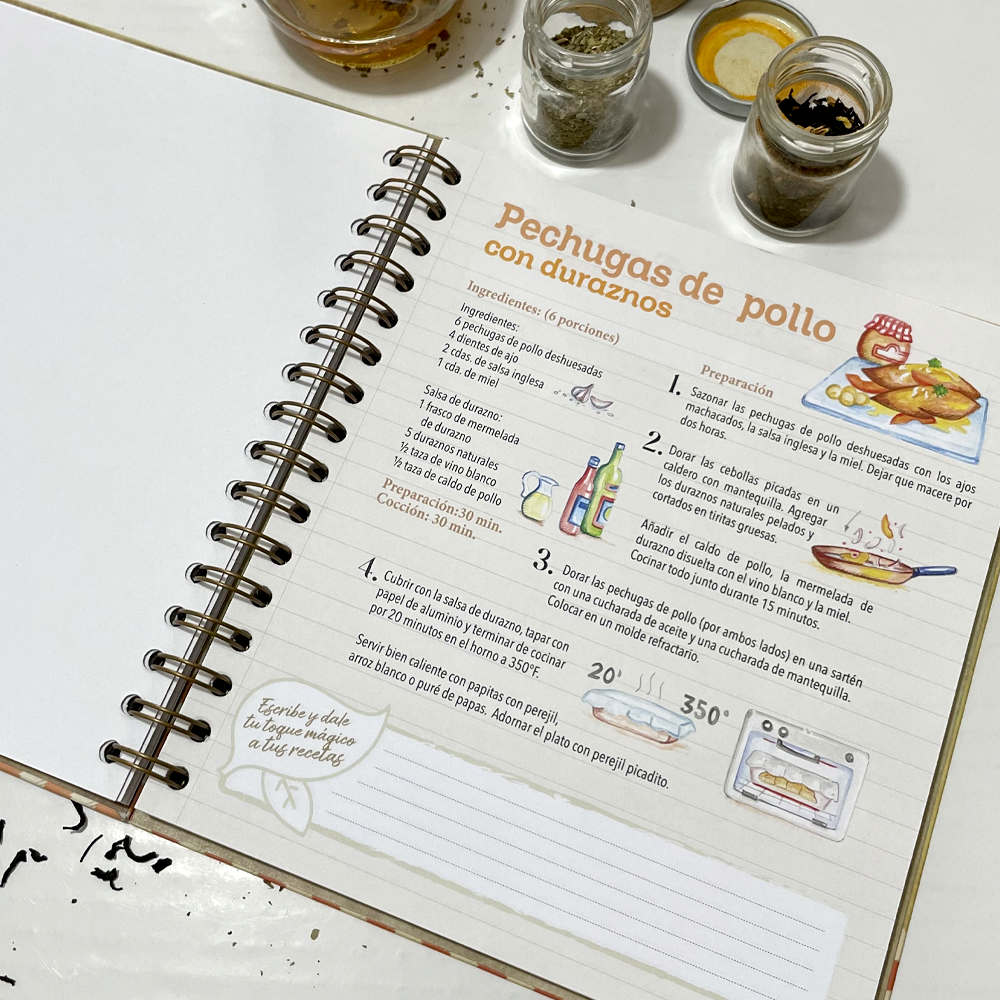 Pechugas de pollo
con duraznos
Ingredientes: (6 porciones)
Ingredientes:
6 pechugas de pollo deshuesadas
4 dientes de ajo
2 cdas. de salsa inglesa
1 cda. de miel
Salsa de durazno:
1 frasco de mermelada
de durazno
5 duraznos naturales
½ taza de vino blanco
½ taza de caldo de pollo
Preparación:30 min.
Cocción: 30 min.
Preparación
1. Sazonar las pechugas de pollo deshuesadas con los ajos
machacados, la salsa inglesa y la miel. Dejar que macere por
dos horas.
2. Dorar las cebollas picadas en un
caldero con mantequilla. Agregar
los duraznos naturales pelados y
cortados en tiritas gruesas.
Añadir el caldo de pollo, la mermelada de
durazno disuelta con el vino blanco y la miel.
Cocinar todo junto durante 15 minutos.
3. Dorar las pechugas de pollo (por ambos lados) en una sartén
con una cucharada de aceite y una cucharada de mantequilla.
Colocar en un molde refractario.
4. Cubrir con la salsa de durazno, tapar con
papel de aluminio y terminar de cocinar
por 20 minutos en el horno a 350°F.
Servir bien caliente con papitas con perejil,
arroz blanco o puré de papas. Adornar el plato con perejil picadito.
20'
350°
Escribe y dale
tu toque mágico
a tus recetas